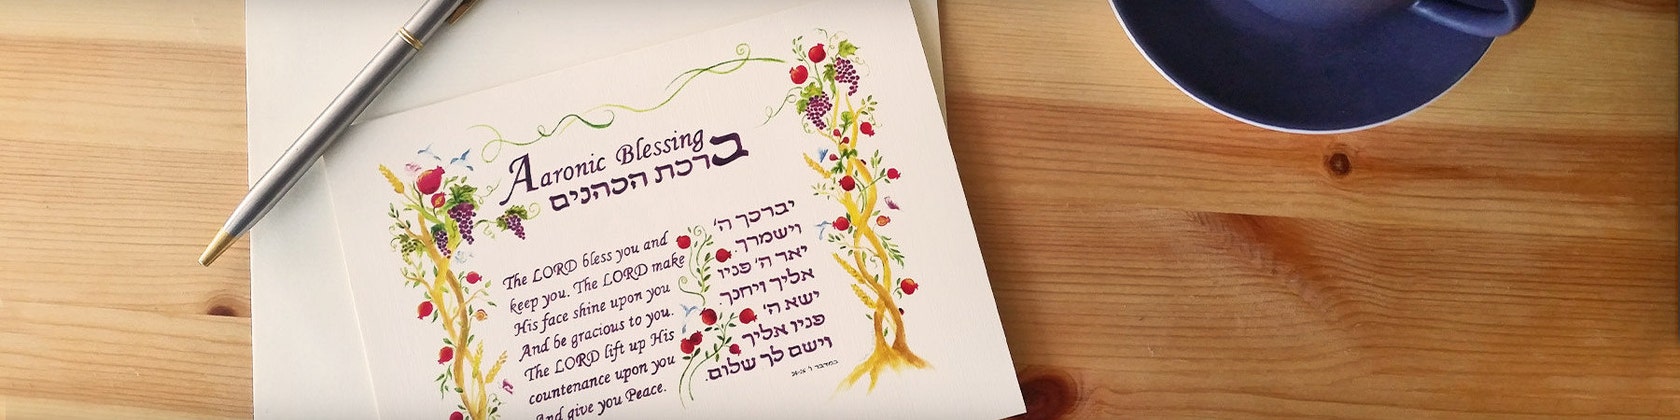 Aaronic Blessing
ברכת הכהנים
The LORD bless you and
keep you. The LORD make
His face shine upon you
And be gracious to you.
The LORD lift up His
countenance upon you
And give you Peace.
יברכך ה'
וישמרך.
יאר ה' פניו
אליך ויחנך
ישא ה'
פניו אליך
וישם לך שלום.
במדבר ו'